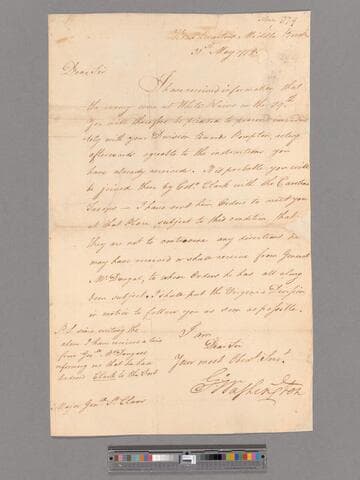 Head Quarters Middle Brook
31st May 1779
Dear Sir
I have received information that
the enemy were at White Plains on the 29th
You will therefore be pleased to proceed immediately
with your Division towards Pompton, acting
afterwards agreeable to the instructions you
have already received. It is probable you will
be joined there by Colo. Clark with the Carolina
Troops — I have sent him Orders to meet you
at that Place, subject to this condition, that
they are not to contravene any directions he
may have received or shall receive from General
McDougal, to whose Orders he has all along
been subject. I shall put the Virginia Division
in motion to follow you as soon as possible.
I am
Dear Sir
Your most Obedt Servt
Go Washington
P.S. since writing the
above I have received a line
from Genl McDougall
informing me that he has
Clark to the Fort
Major Genl St Clair